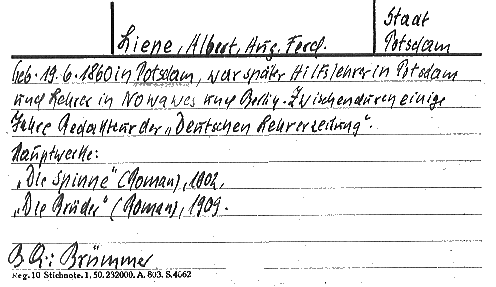 Stadt
Liene, Albert, Aug. Ferd. Potsdam
geb. 19.6.1860 in Potsdam, war später Hilfslehrer in Potsdam
und Lehrer in Nowawes und Berlin. Zwischendurch einige
Jahre Redakteur der „Deutschen Lehrerzeitung".
Hauptwerke:
„Die Spinne" (Roman), 1902,
„Die Brüder" (Roman), 1909.
Brümmer
Reg. 10 Stichnote. 1, 50. 232000. A. 803. S. 4062